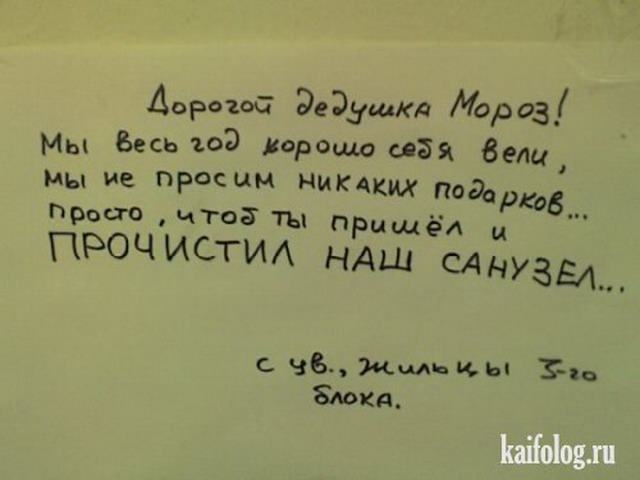 Дорогой дедушка Мороз!
Мы весь год хорошо себя вели,
мы не просим никаких подарков...
просто, чтоб ты пришёл и
ПРОЧИСТИЛ НАШ САНУЗЕЛ...
с ув., жильцы 3-го
блока.
kaifolog.ru